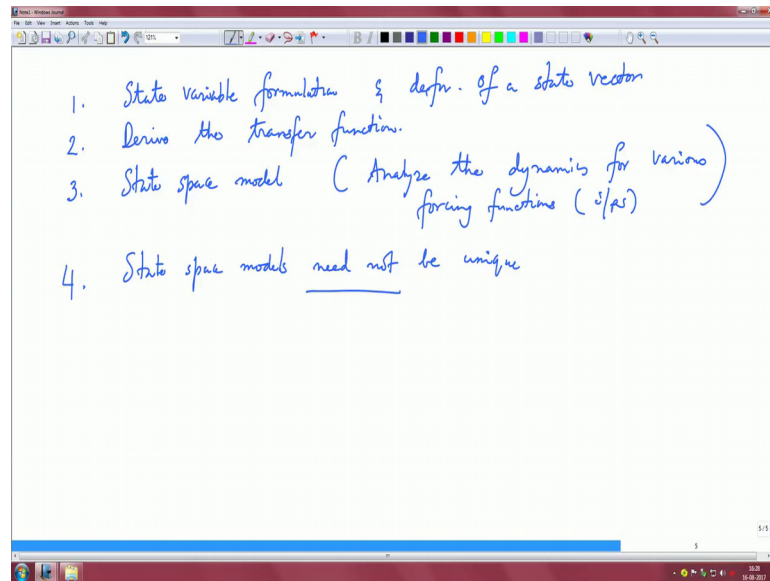 Note1 - Windows Journal
File Edit View Insert Actions Tools Help
121%
B I
1. State variable formulation & defn. of a state vector
2. Derive the transfer function.
3. State space model ( Analyze the dynamics for various
forcing functions ( i/ps) )
4. State space models need not be unique
5/5
5
16:28
16-08-2017